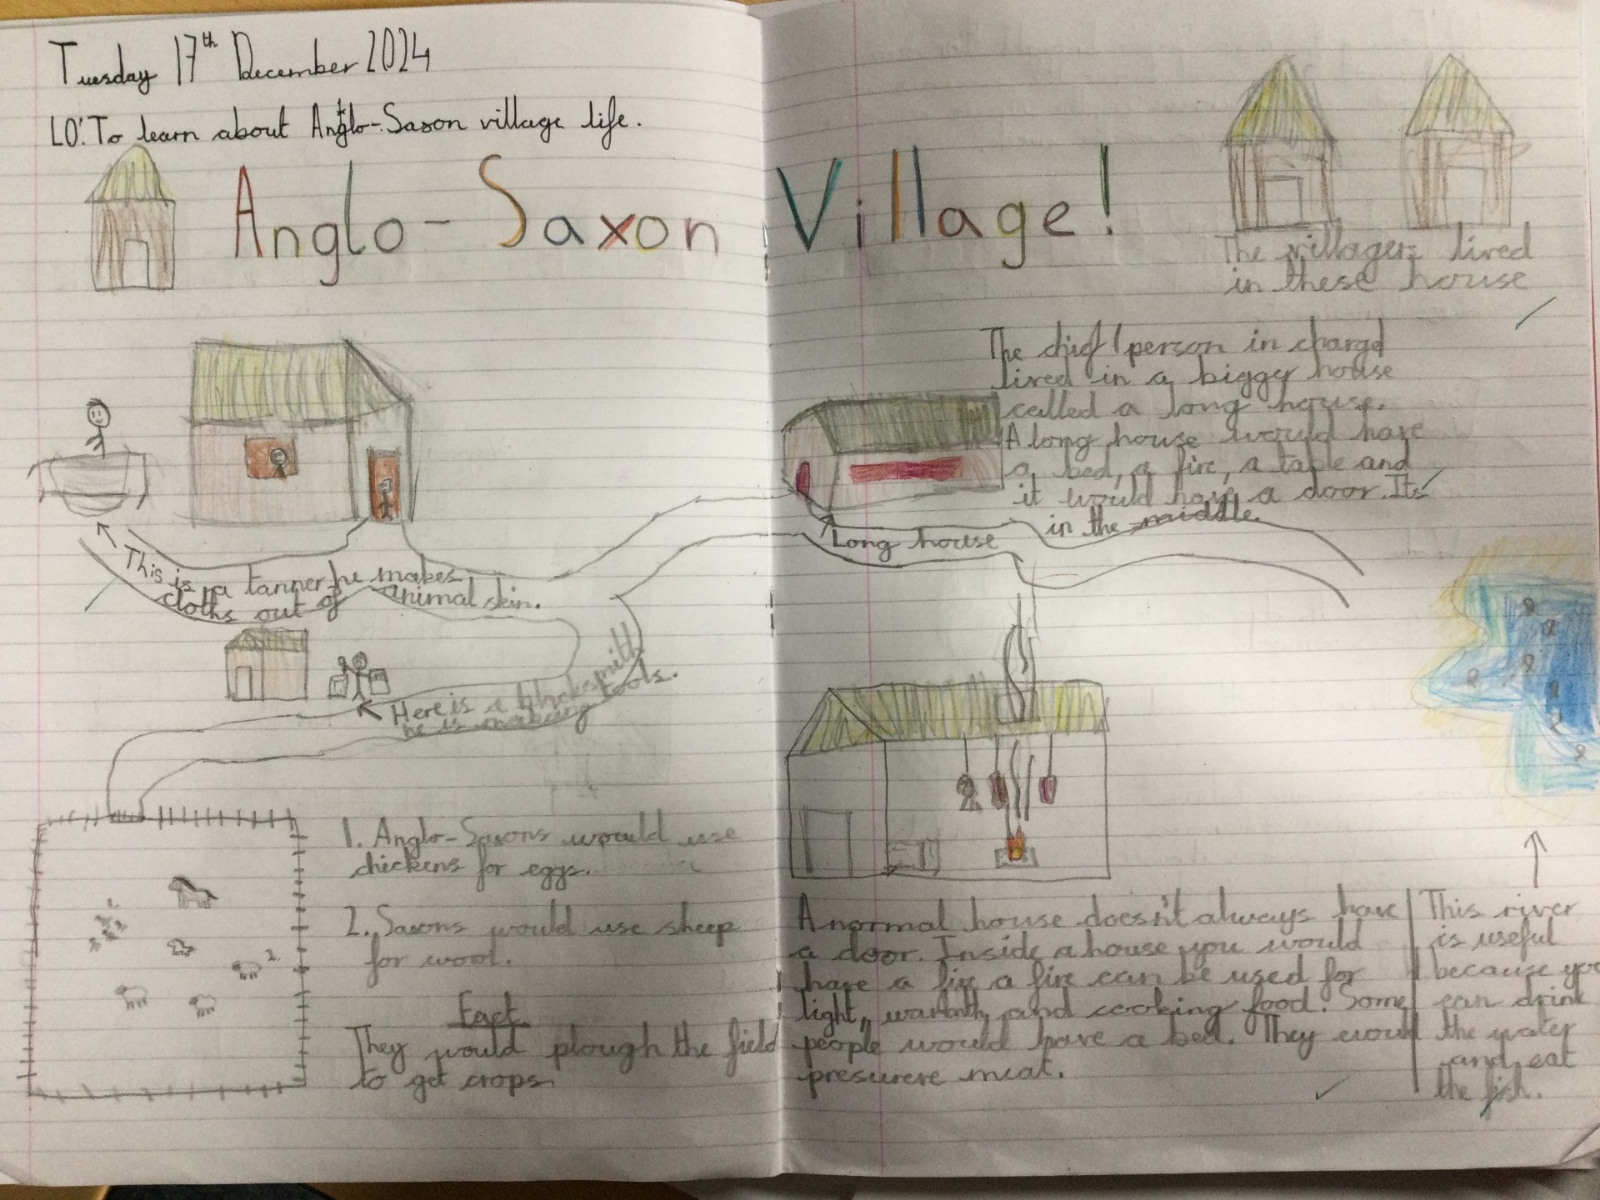 Tuesday 17th December 2024
LO: To learn about Anglo-Saxon village life.
Anglo-Saxon Village!
The villagers lived
in these house
The chief/person in charge
lived in a bigger house
called a long house.
A long house would have
a bed, a fire, a table and
it would have a door. Its
in the middle.
Long house
This is a tanner he makes
cloths out of animal skin.
Here is a blacksmith
he is making tools.
1. Anglo-Saxons would use
chickens for eggs.
2. Saxons would use sheep
for wool.
Fact
They would plough the field
to get crops.
2.
A normal house doesn't always have
a door. Inside a house you would
have a fire a fire can be used for
light, warmth, and cooking food. Some
people would have a bed. They would
presurere meat.
This river
is useful
because you
can drink
the water
and eat
the fish.